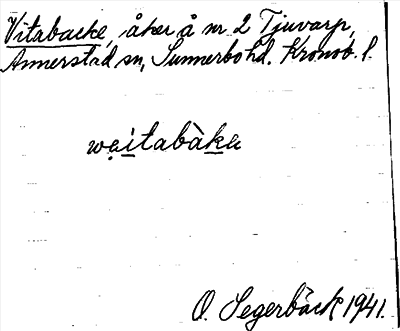 Vitabacke, åker å nr 2 Tjuvarp,
Annerstad sn, Sunnerbo hd. Kronob. l.
waitabàka
O. Segerbäck 1941.